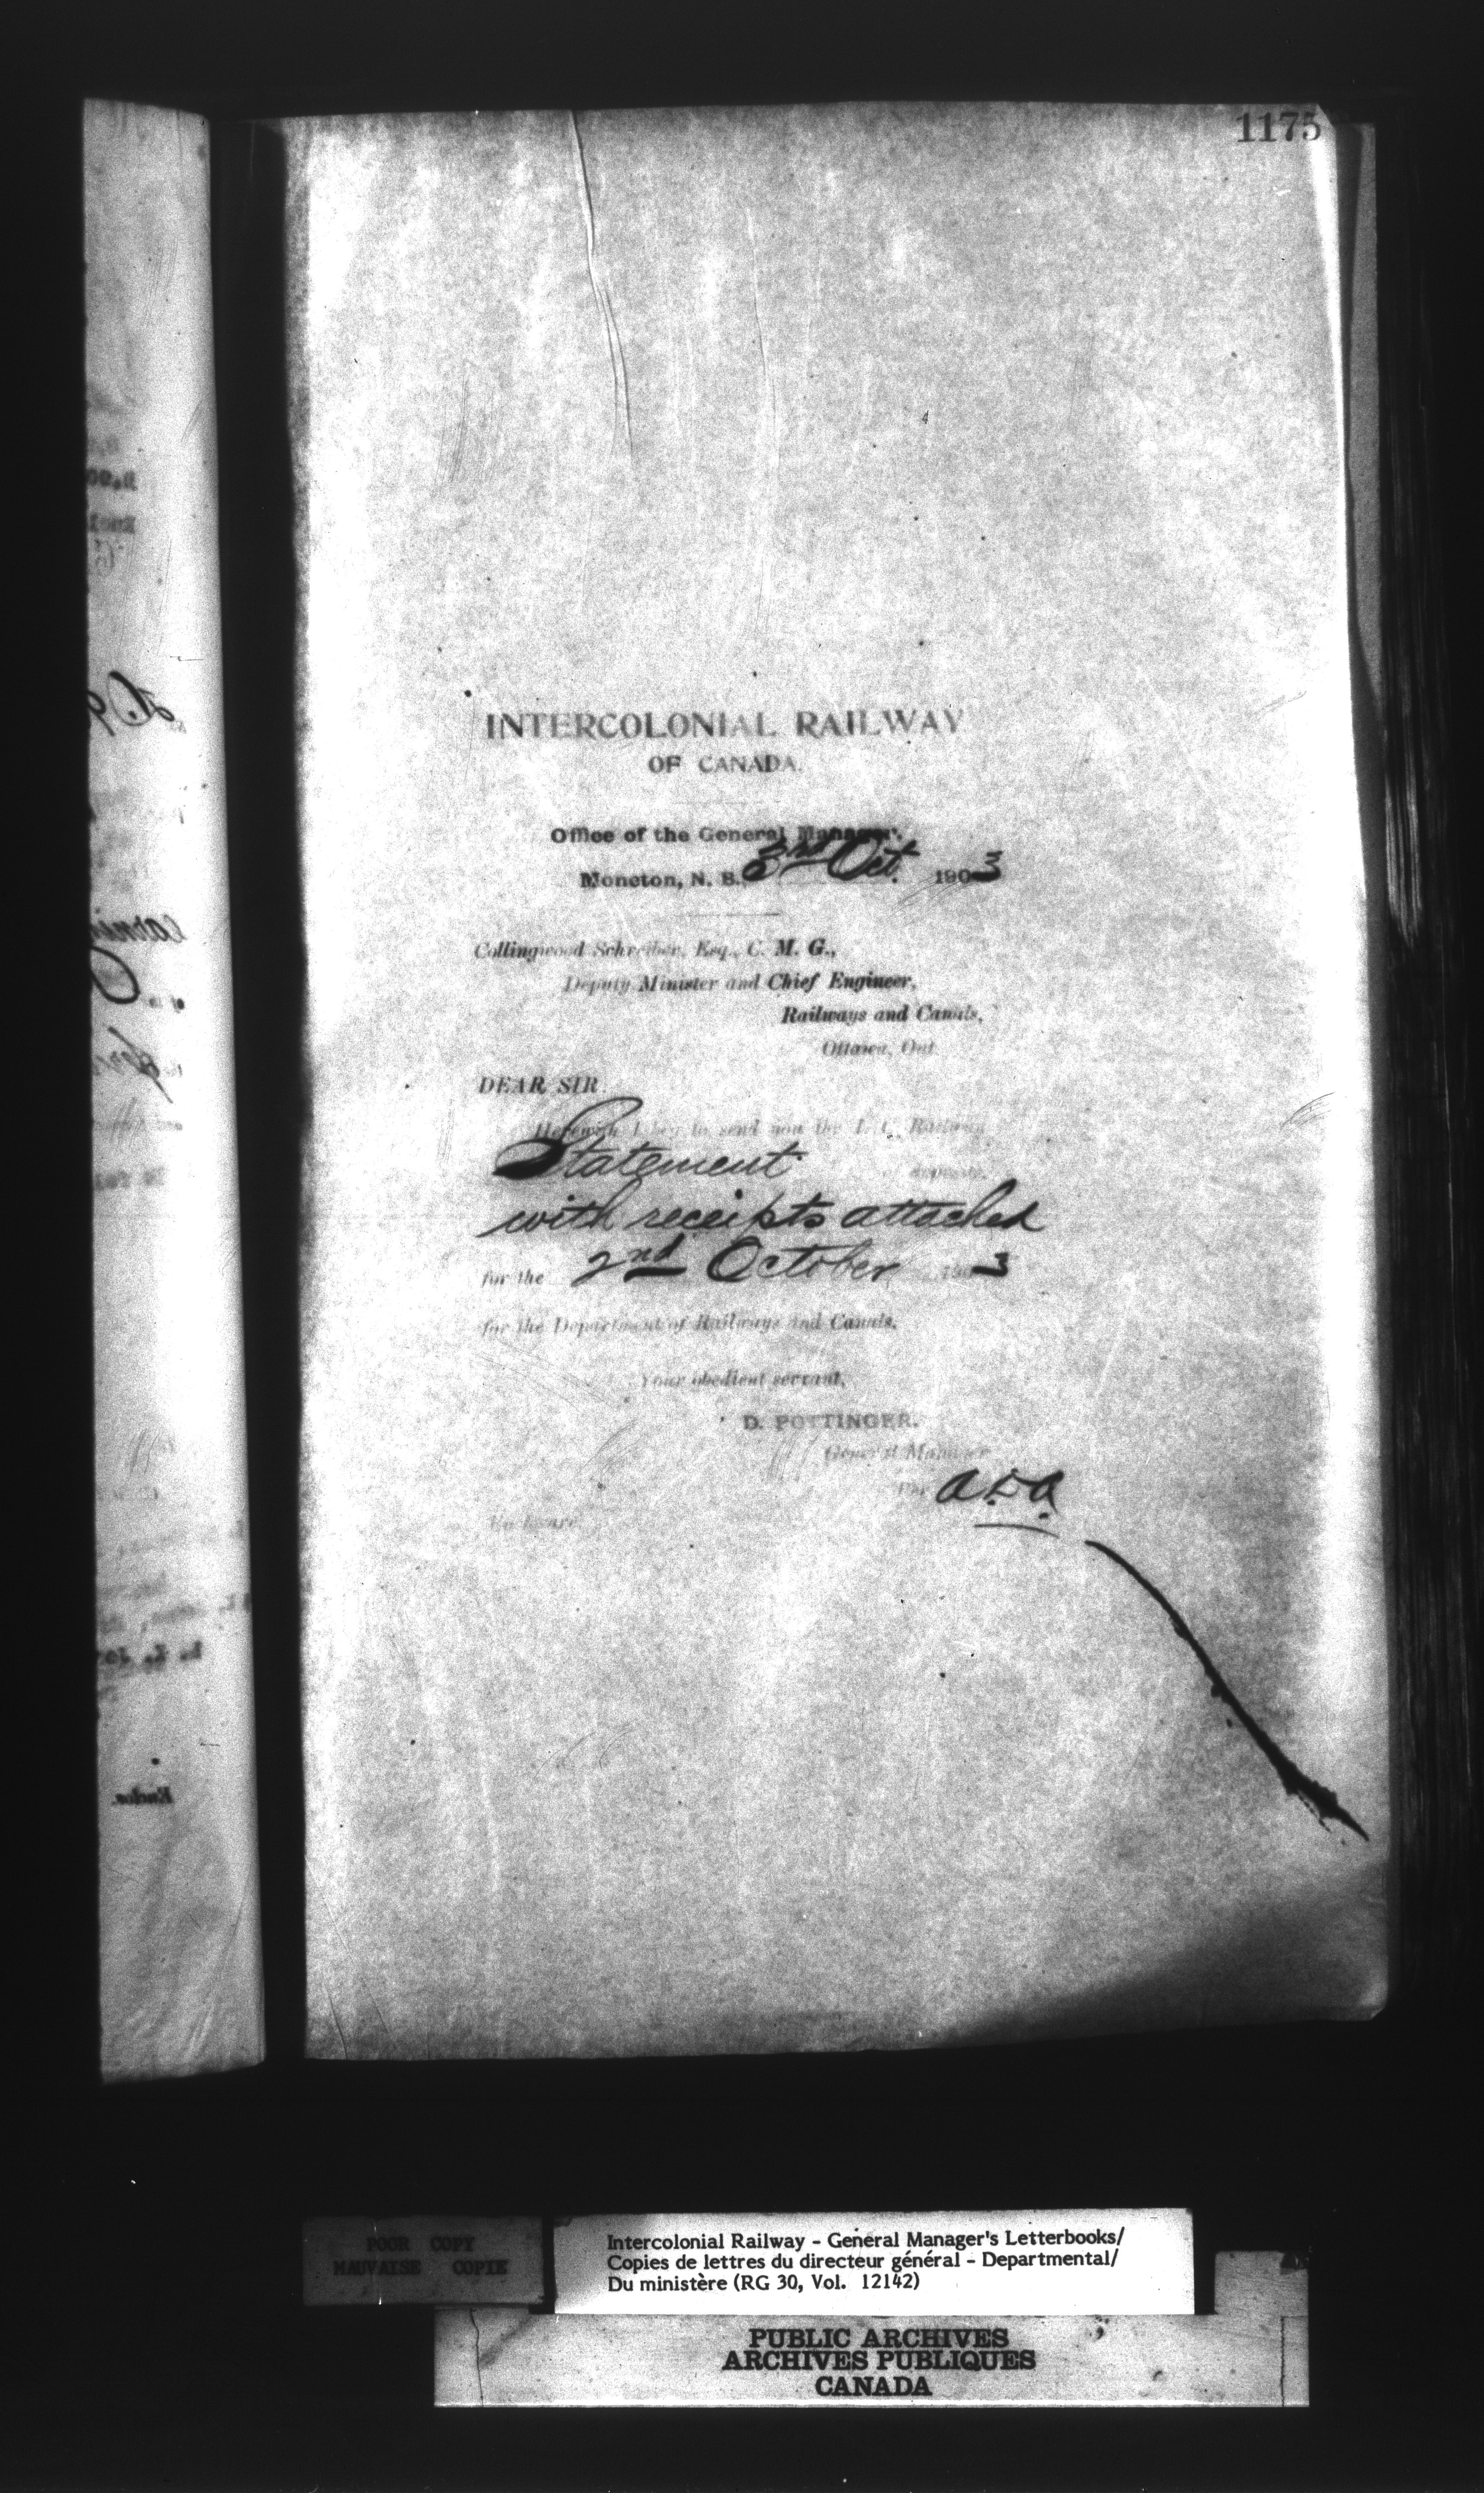 1175
INTERCOLONIAL RAILWAY
OF CANADA.
Office of the General Manager.
Moncton, N. B., 3rd Oct. 1903
Collingwood Schreiber, Esq., C. M. G.,
Deputy Minister and Chief Engineer,
Railways and Canals,
Ottawa, Ont.
DEAR SIR
Herewith I beg to send you the I. C. Railway
Statement
with receipts attached
for the 2nd October 1903
for the Department of Railways and Canals.
Your obedient servant,
D. POTTINGER.
General Manager
Enclosure.
POOR COPY
MAUVAISE COPIE
Intercolonial Railway - General Manager's Letterbooks/
Copies de lettres du directeur général - Departmental/
Du ministère (RG 30, Vol. 12142)
PUBLIC ARCHIVES
ARCHIVES PUBLIQUES
CANADA